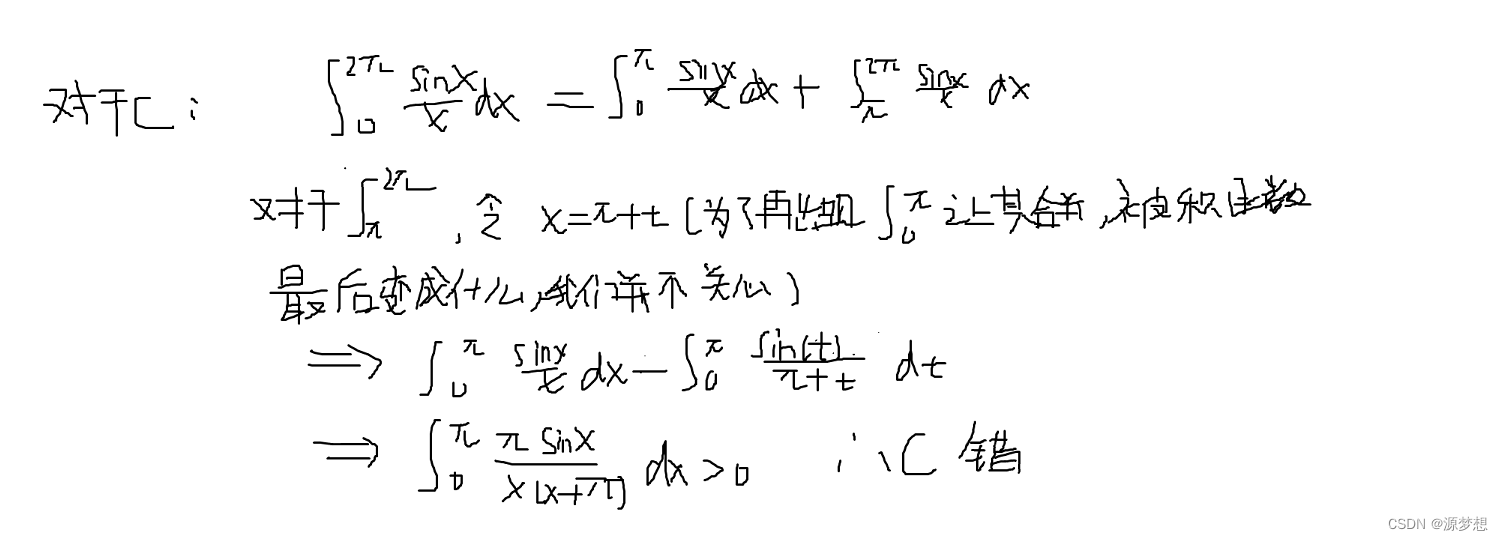 对于C: ∫₀^{2π} sinx/x dx = ∫₀^π sinx/x dx + ∫_π^{2π} sinx/x dx
对于∫_π^{2π}, 令 x=π+t (为了再出现∫₀^π 让其合并,被积函数
最后变成什么,我们并不关心)
⟹ ∫₀^π sinx/x dx - ∫₀^π sin(t)/(π+t) dt
⟹ ∫₀^π πsinx/(x(x+π)) dx>0 ∴C错
CSDN @源梦想